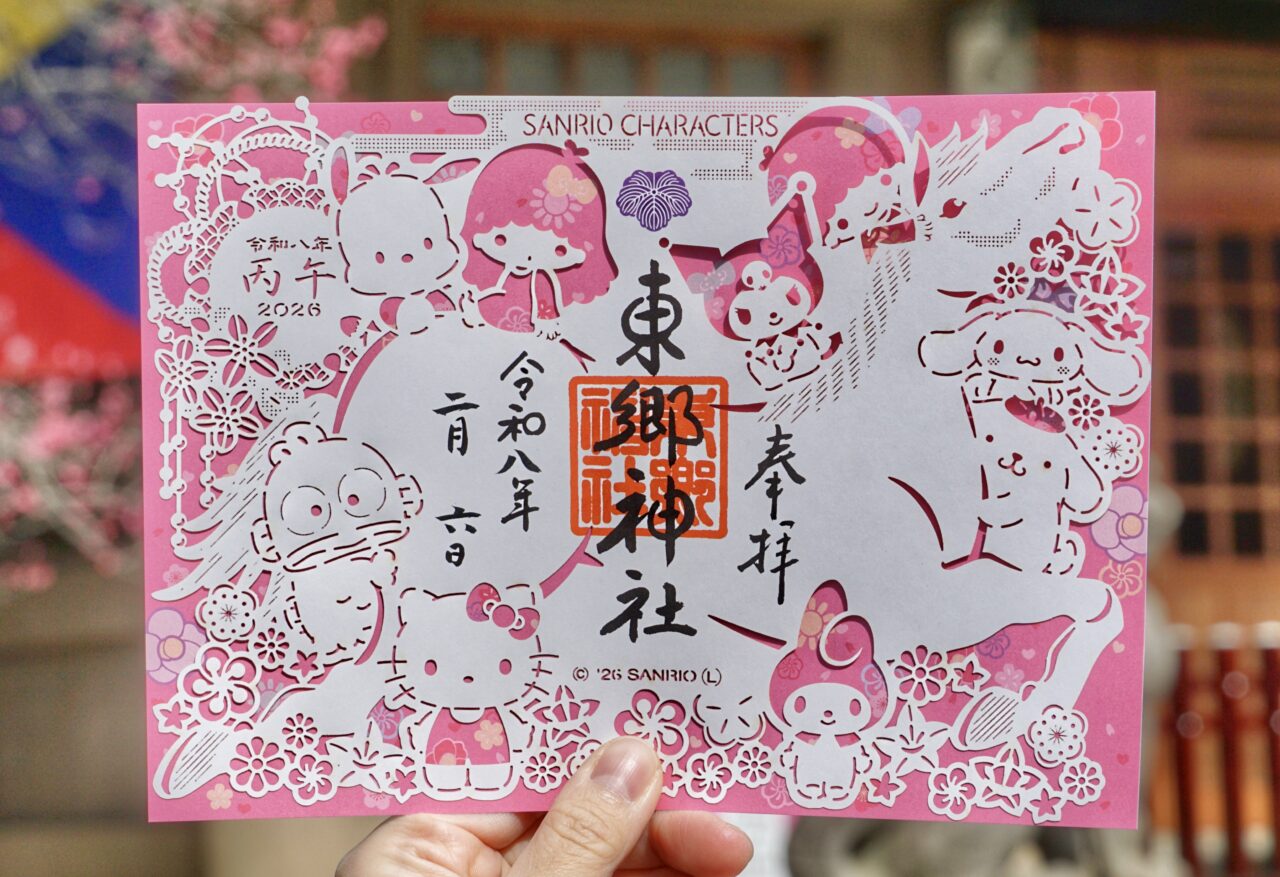 SANRIO CHARACTERS
令和八年
丙午
2026
奉拝
東郷神社
東郷神社
令和八年
二月 六日
© '26 SANRIO (L)